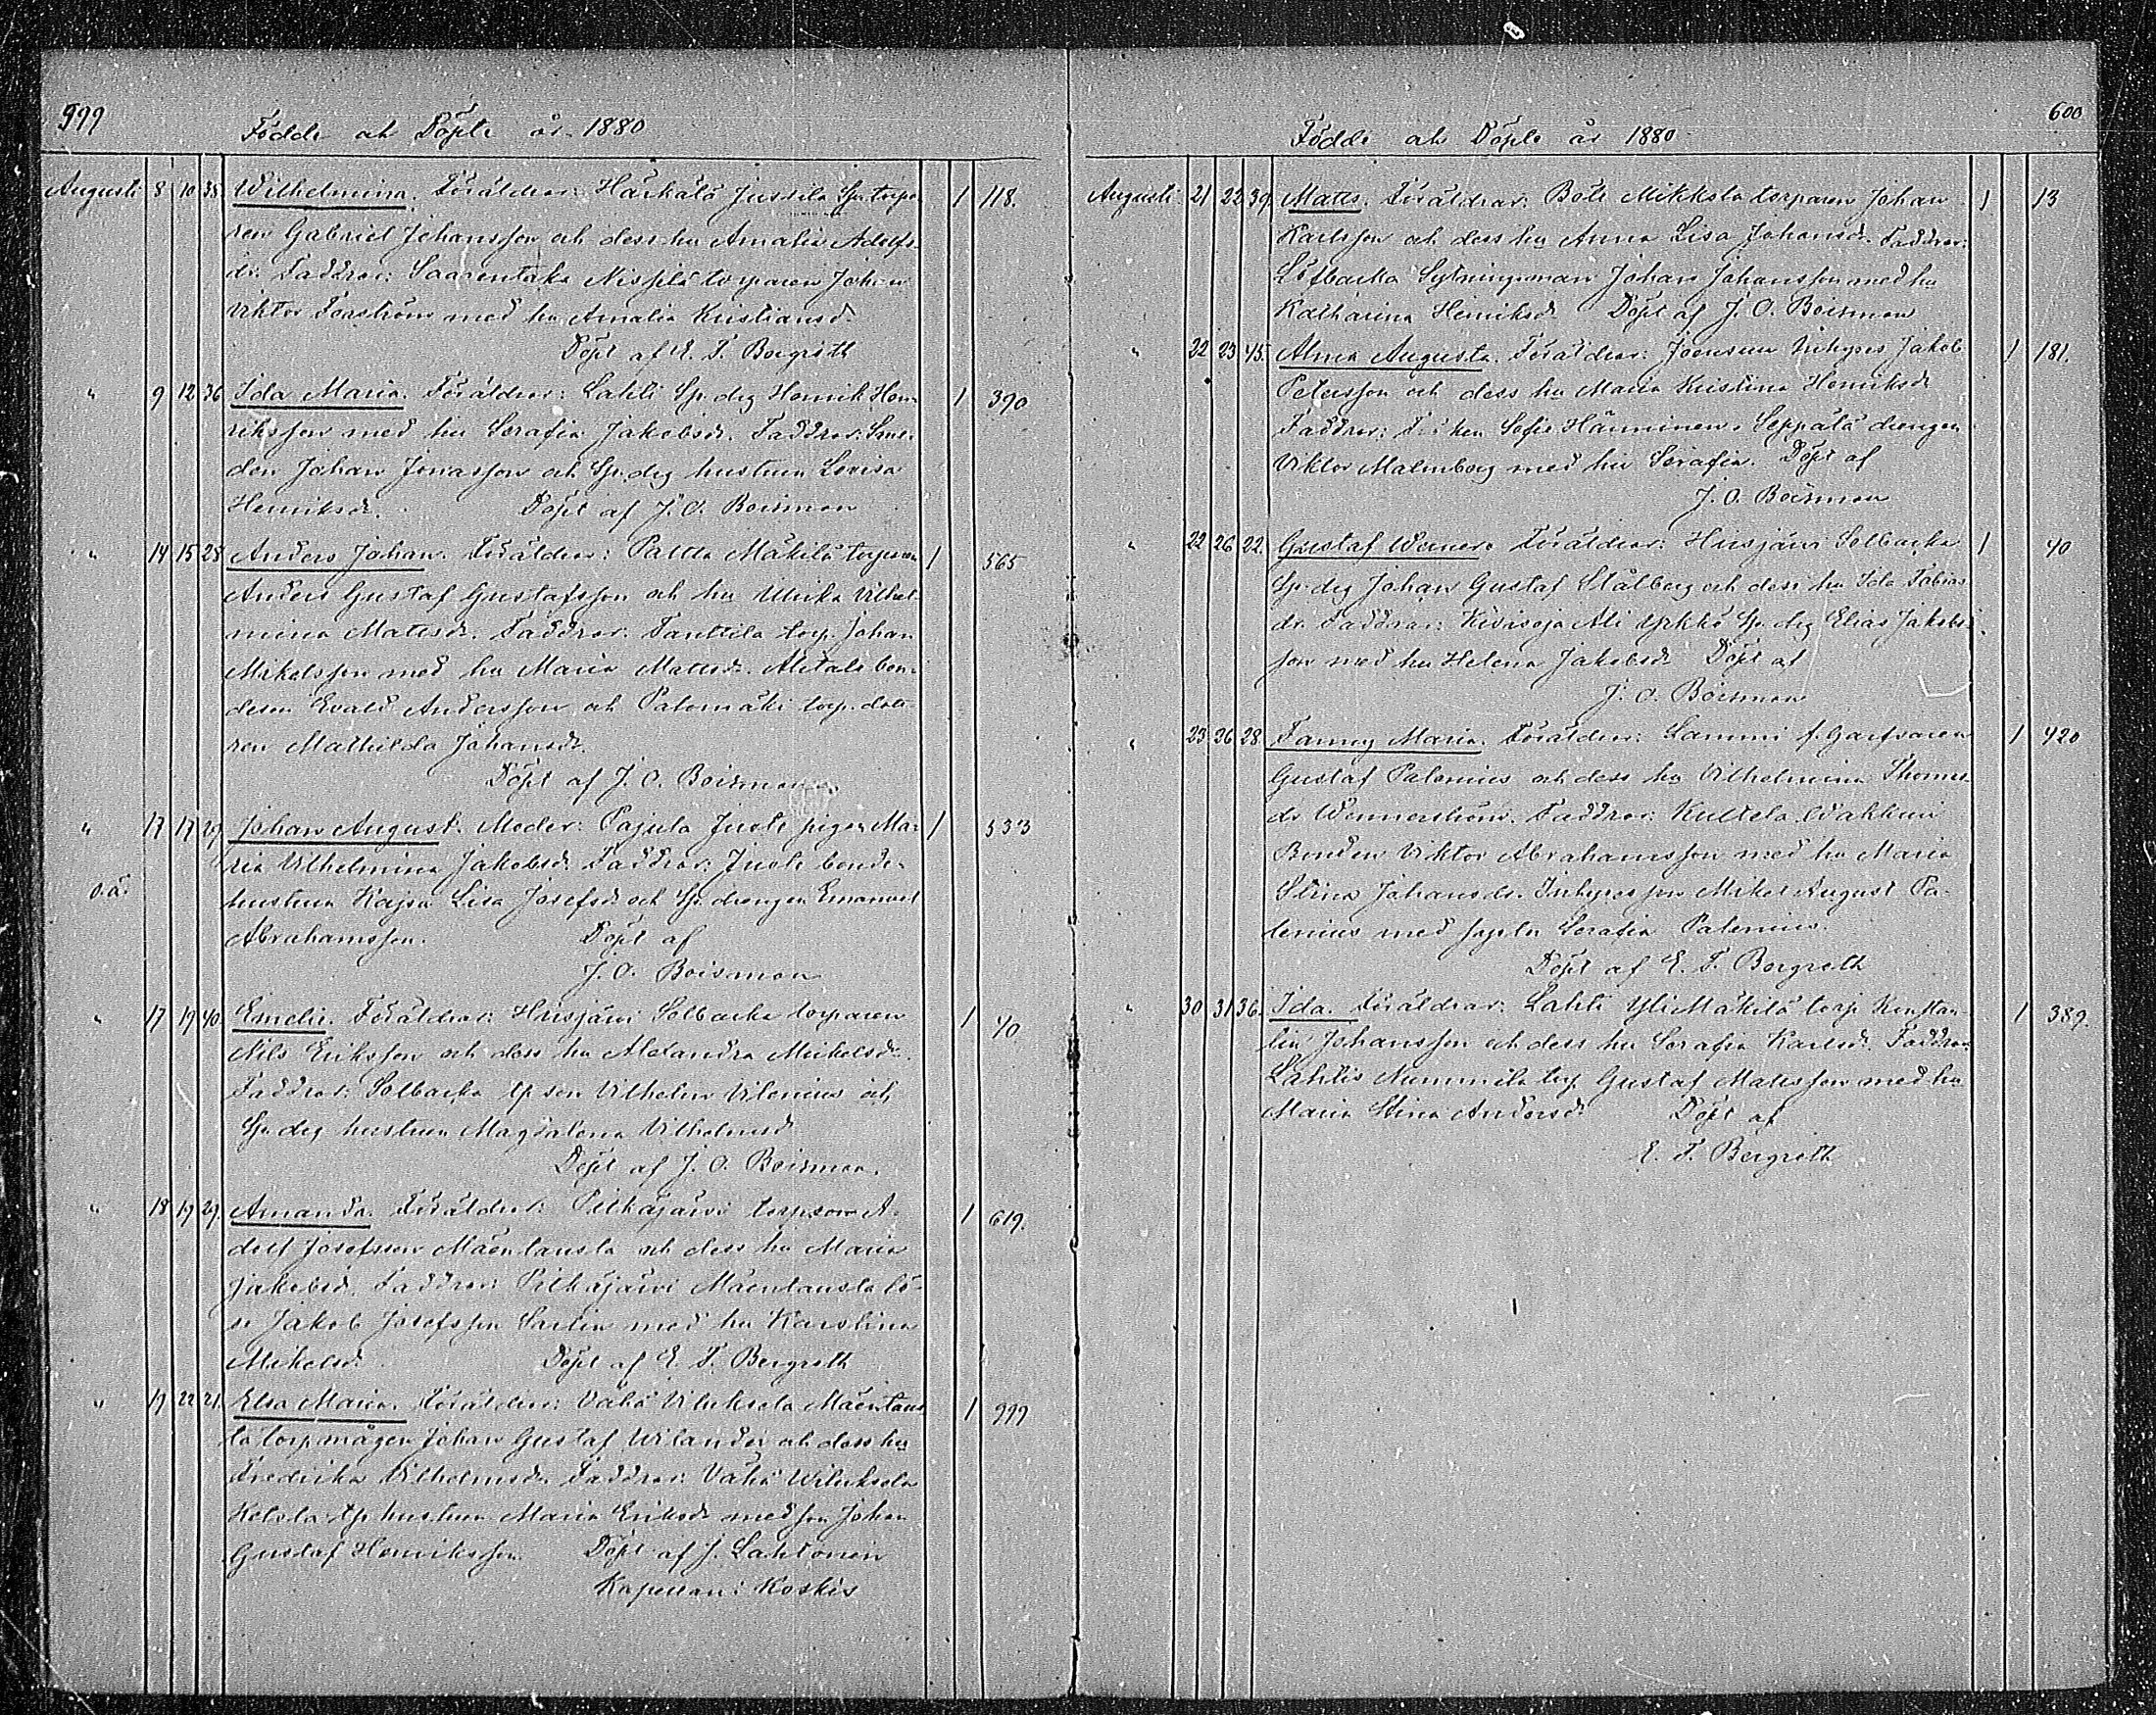 599
Födde och Döpte år 1880
Augusti 8 10 38 Wilhelmina. Föräldrar: Härkälä Jussila Sp. torpa-
ren Gabriel Johansson och dess hu Amalia Adolfs-
dr. Faddrar: Saarentaka torparen Johan
Viktor Forström med hu Amalia Kristiansd. 1 118.
Döpt af E. T. Bergroth
" 9 12 36 Ida Maria. Föräldrar: Lahti Sp. drg Henrik Hen-
riksson med hu Serafia Jakobsdr. Faddrar: Sme-
den Johan Jonasson och Sp. drg hustrun Lovisa 1 390
Henriksdr. Döpt af J. O. Boisman
" 14 15 25 Anders Johan. Föräldrar: Palda Mäkilä torparen
Anders Gustaf Gustafsson och hu Ulrika Vilhel- 1 565
mina Mattsdr. Faddrar: Tanttila torp. Johan
Mikelsson med hu Maria Mattsdr. Alitalo bon-
desn Evald Andersson och Palomäki torp. dott-
ren Mathilda Johansdr.
Döpt af J. O. Boisman
" 17 17 29 Johan August. Moder: Pajula Juote pigan Ma-
ria Vilhelmina Jakobsd. Faddrar: Juote bonde- 1 533
o.ä. hustrun Kajsa Lisa Josefsdr och Sp. drengen Emanuel
Abrahamsson. Döpt af
J. O. Boisman
" 17 19 40 Emelie. Föräldrar: Hirsjärvi Solbacka torparen
Nils Eriksson och dess hu Alexandra Mickelsdr. 1 40
Faddrar: Solbacka tp son Vilhelm Vilenius och
Sp. drg hustrun Magdalena Vilhelmsd
Döpt af J. O. Boisman.
" 18 19 29. Amanda. Föräldrar: Pitkäjärvi torp.son A-
dolf Josefsson Mäentausta och dess hu Maria 1 619.
Jakobsd. Faddrar: Pitkäjärvi Mäentausta
Jakob Josefsson med hu Karolina
Mikelsd. Döpt af E. T. Bergroth
" 19 22 21. Elsa Maria. Föräldrar: Vähä Viluksela Mäentaus-
ta torp.mågen Johan Gustaf Wilander och dess hu 1 999
Fredrika Vilhelmsdr. Faddrar: Vähä Wiluksela
tp hustrun Maria Eriksdr med son Johan
Gustaf Henriksson. Döpt af J. Lahtonen
Kapellan i Koskis
600
Födde och Döpte år 1880
Augusti 21 22 39. Matts. Föräldrar: Böle Mikkola torparen Johan 1 13
Karlsson och dess hu Anna Lisa Johansdr. Faddrar:
Löfbacka Sytningsman Johan Johansson med hu
Katharina Henriksdr Döpt af J. O. Boisman
" 22 23 45. Alma Augusta. Föräldrar: Joensuu Inhyses Jakob 1 181.
Petersson och dess hu Maria Kristina Henriksdr
Faddrar: Sofie Hänninen, Seppälä drengen
Viktor Malmberg med hu Serafia. Döpt af
J. O. Boisman
" 22 26 22. Gustaf Werner. Föräldrar: Hirsjärvi Solbacka 1 40
Sp. drg Johan Gustaf Stålberg och dess hu Ida Tobias-
dr. Faddrar: Kivisoja Ali Yrkkö Sp. drg Elias Jakobs-
son med hu Helena Jakobsdr Döpt af
J. O. Boisman
" 23 26 28. Fanny Maria. Föräldrar: Lammi f. Garfvaren 1 420
Gustaf Palenius och dess hu Vilhelmina Thomas-
dr Wennerström. Faddrar: Kultela Wahkuri
Bonden Viktor Abrahamsson med hu Maria
Stina Johansdr. Inhyses son Mikel August Pa-
lenius med Serafia Palenius.
Döpt af E. T. Bergroth
" 30 31 36. Ida. Föräldrar: Lahti Yli Mäkilä torp Konstan- 1 389.
tin Johansson och dess hu Serafia Karlsdr. Faddrar:
Lahtis Nummila torp. Gustaf Mattsson med hu
Maria Stina Andersdr Döpt af
E. T. Bergroth